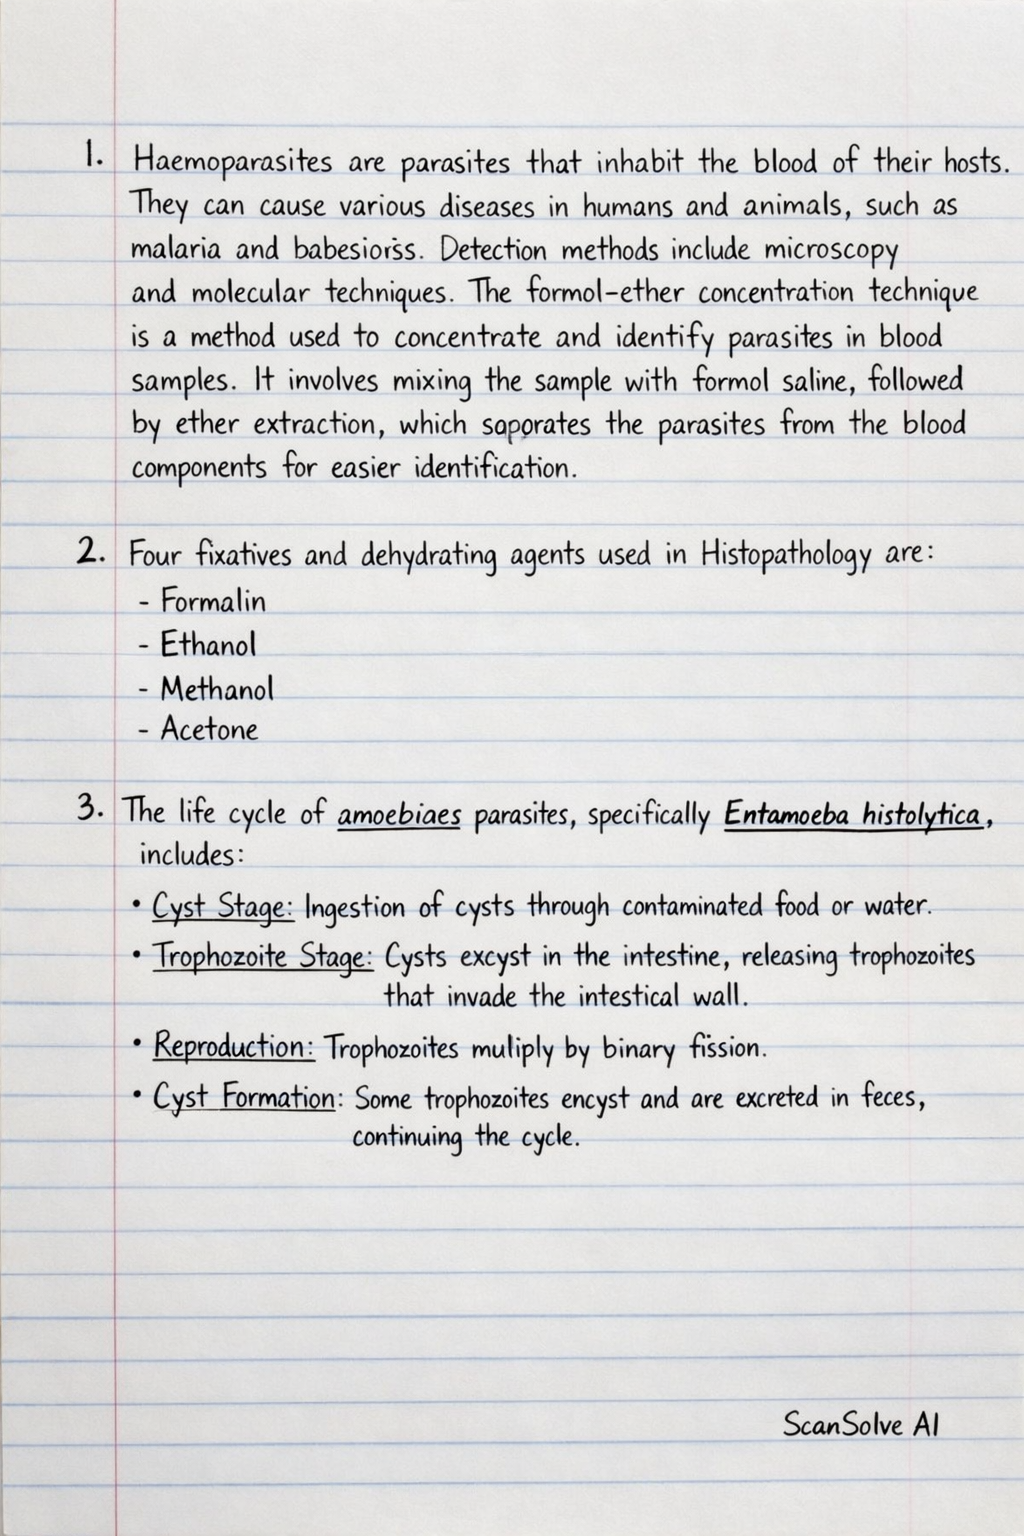 1. Haemoparasites are parasites that inhabit the blood of their hosts.
They can cause various diseases in humans and animals, such as
malaria and babesiorss. Detection methods include microscopy
and molecular techniques. The formol-ether concentration technique
is a method used to concentrate and identify parasites in blood
samples. It involves mixing the sample with formol saline, followed
by ether extraction, which saporates the parasites from the blood
components for easier identification.
2. Four fixatives and dehydrating agents used in Histopathology are:
- Formalin
- Ethanol
- Methanol
- Acetone
3. The life cycle of amoebiaes parasites, specifically Entamoeba histolytica,
includes:
• Cyst Stage: Ingestion of cysts through contaminated food or water.
• Trophozoite Stage: Cysts excyst in the intestine, releasing trophozoites
that invade the intestical wall.
• Reproduction: Trophozoites muliply by binary fission.
• Cyst Formation: Some trophozoites encyst and are excreted in feces,
continuing the cycle.
ScanSolve AI